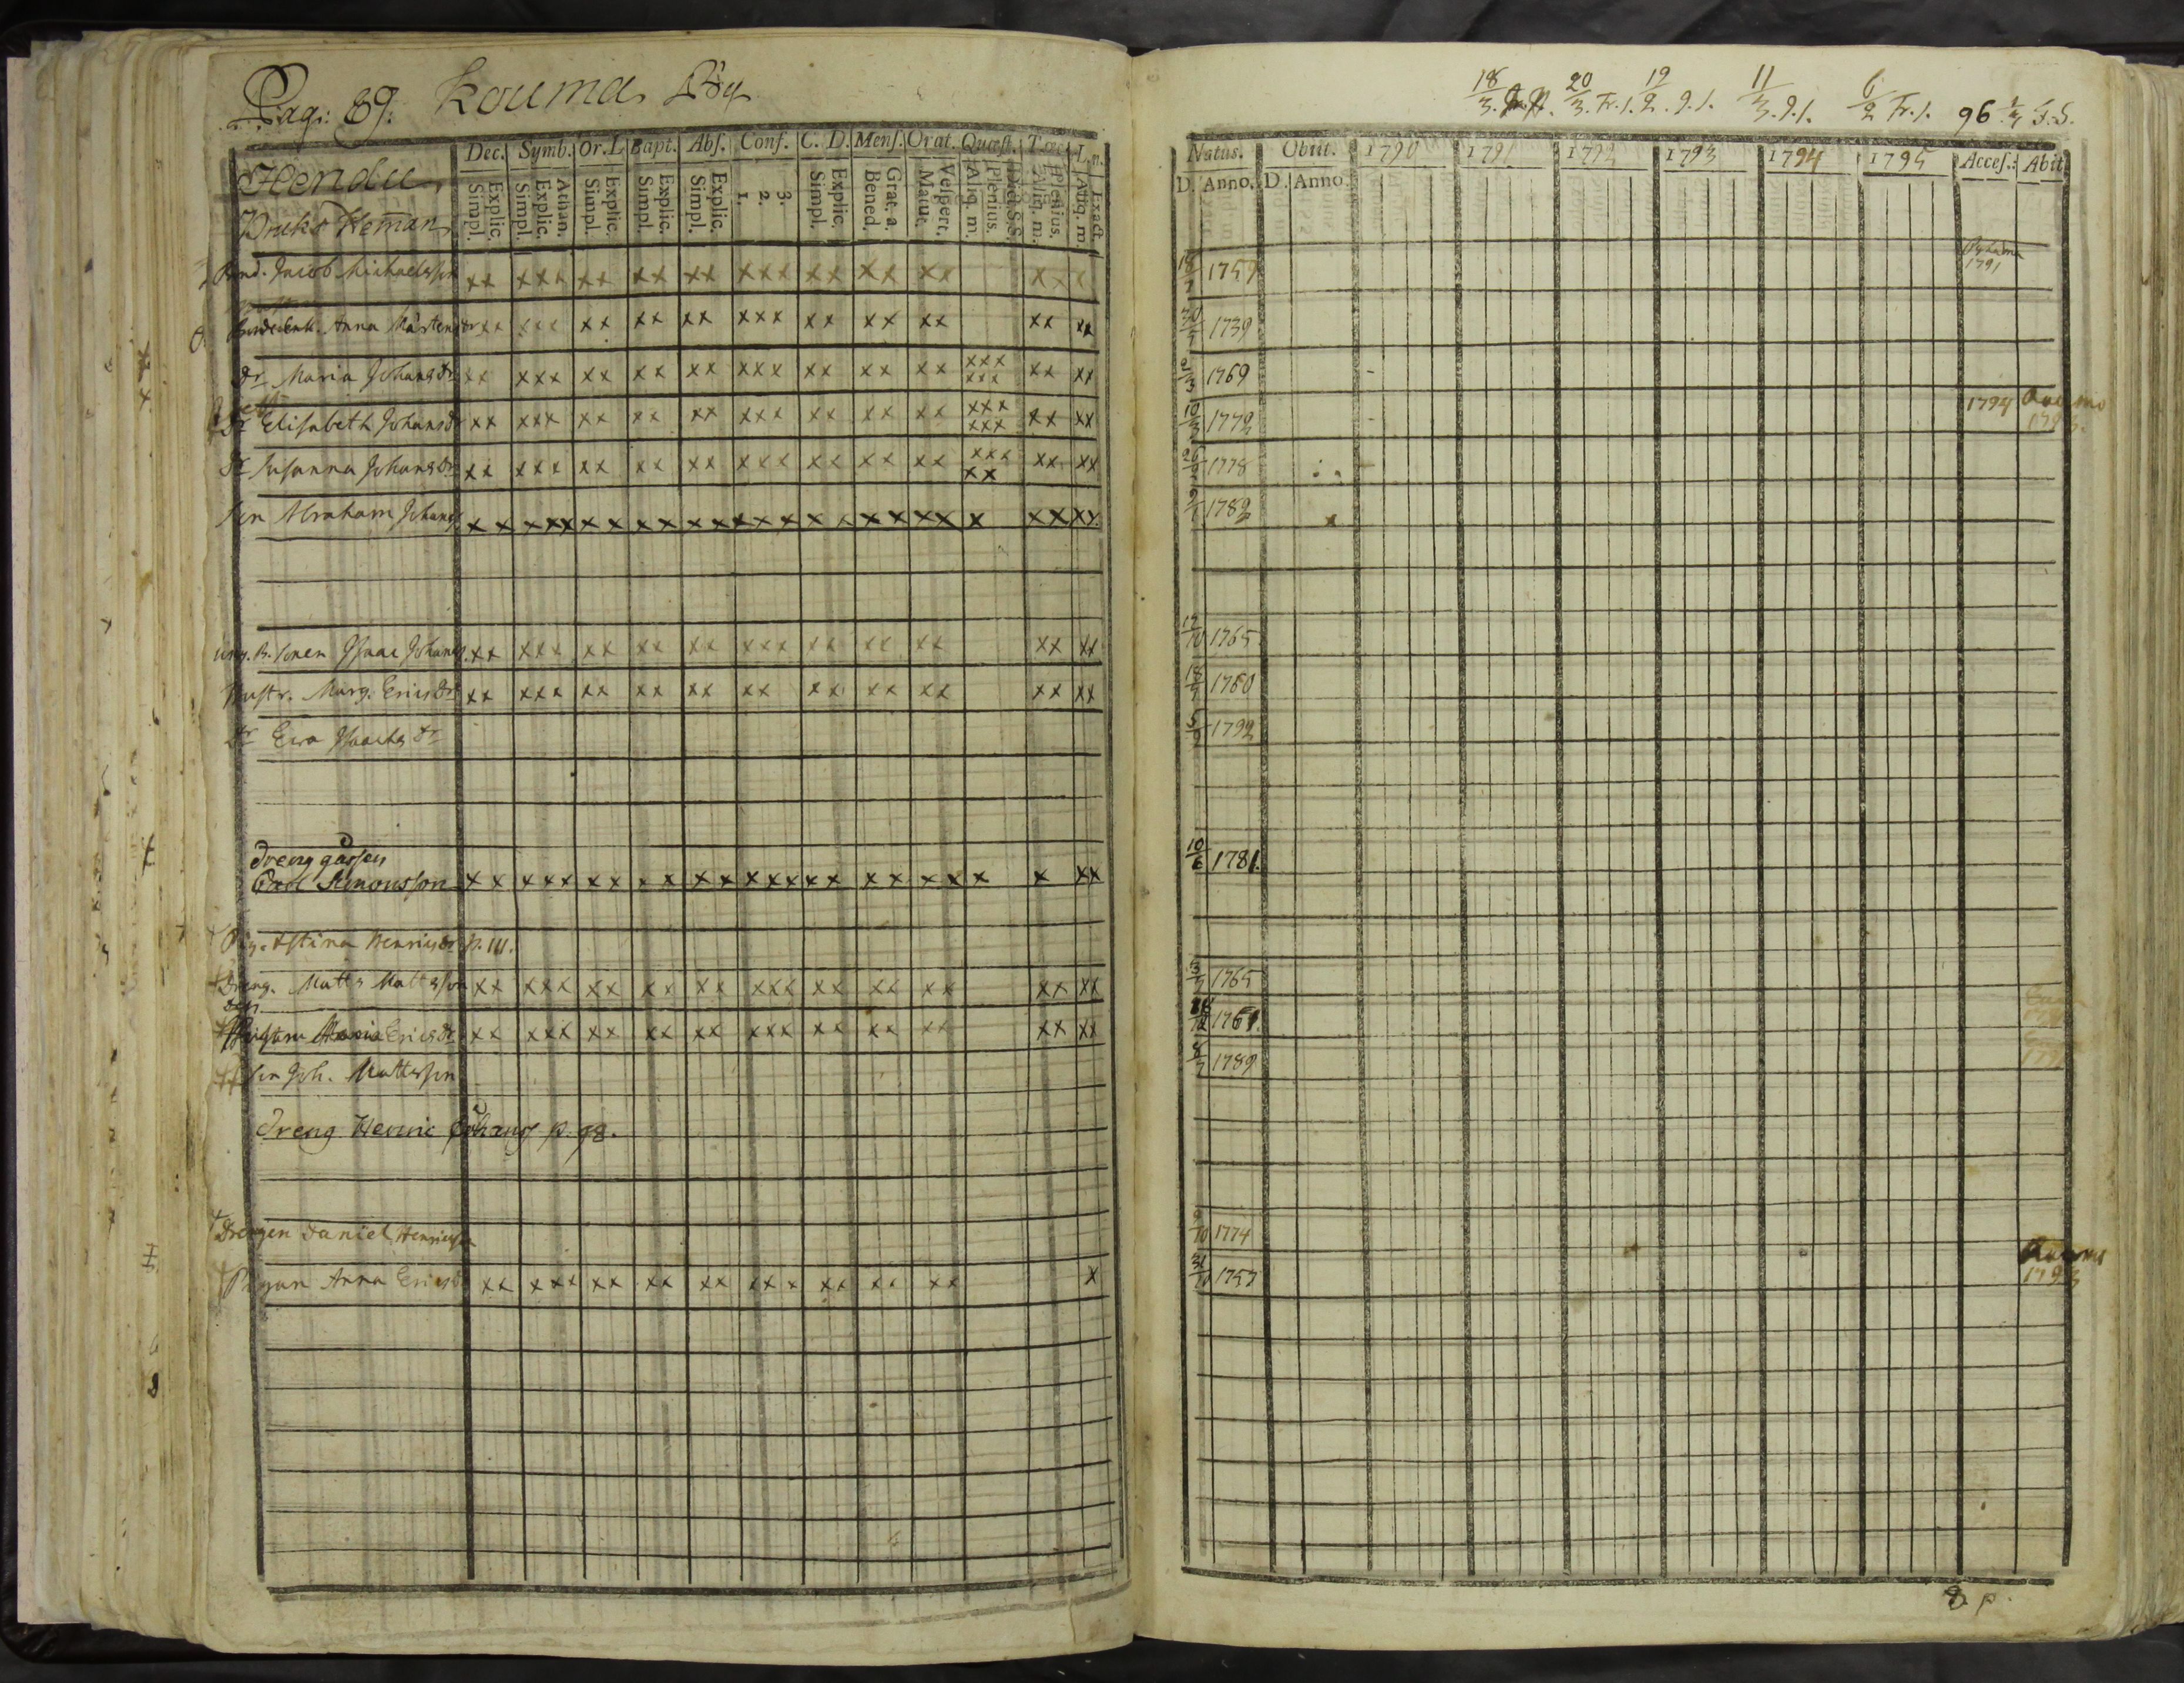 Pag: 89. Kouma By
Hendu,
Dec. Symb. Or. L Bapt. Abs. Conf. C. D. Mens. Orat. Quæst. T. œc L. n.
Simpl. Explic. Simpl. Explic. Athan. Simpl. Explic. Simpl. Explic. Simpl. Explic. 1. 2. 3. Simpl. Explic. Bened. Grat. a. Matut. Vespert. Aliq. m. Plenius. Dict. S.S. Aliq. m. Plenius. Aliq. m. Exact.
Heman
Bond. Jacob Michaelsson xx xxx xx xx xx xxx xx xx xx xx x
Anna Mårtensdr xx xxx xx xx xx xxx xx xx xx xx xx
Dr Maria Johansdr xx xxx xx xx xx xxx xx xx xx xxx xxx xx xx
Dr Elisabeth Johansdr xx xxx xx xx xx xxx xx xx xx xxx xxx xx xx
Dr Susanna Johansdr xx xxx xx xx xx xxx xx xx xx xxx xx xx xx
Son Abraham Johans xx xxxx xx xx xx xxx xx xx xx x xx xx
ung. B. sonen Isaac Johans. xx xxx xx xx xx xxx xx xx xx xx xx
Hustr. Marg. Ericsdr xx xxx xx xx xx xx xx xx xx xx xx
Dr Eva Isaacsdr
Dreng gåssen
Carl Simonsson xx xxx xx xx xx xxx xx xx xx x x xx
Pig. Stina Henricsdr p. 111.
Dreng. Matts Mattsson xx xxx xx xx xx xxx xx xx xx xx xx
Maria Ericsdr xx xxx xx xx xx xxx xx xx xx xx xx
Son Joh. Mattsson
Dreng Henric Johans p. 98.
Drengen Daniel Henricsson
Pigan Anna Ericsdr xx xxx xx xx xx xxx xx xx xx x
18/3. 20/3. Fr. l. 19/2. J. l. 11/3. J. l. 6/2 Fr. l. 96 1/3 F. S.
Natus. Obiit. 1790 1791 1792 1793 1794 1795 Acces.: Abit
D. Anno. D. Anno.
1757 1791
30 1739
2/3 1769
10/3 1772 1794
1778
1782
17/10 1765
18 1760
5/2 1792
10/6 1781.
1765
1761.
8 1789
9/10 1774
31/10 1757 1793
8. p.